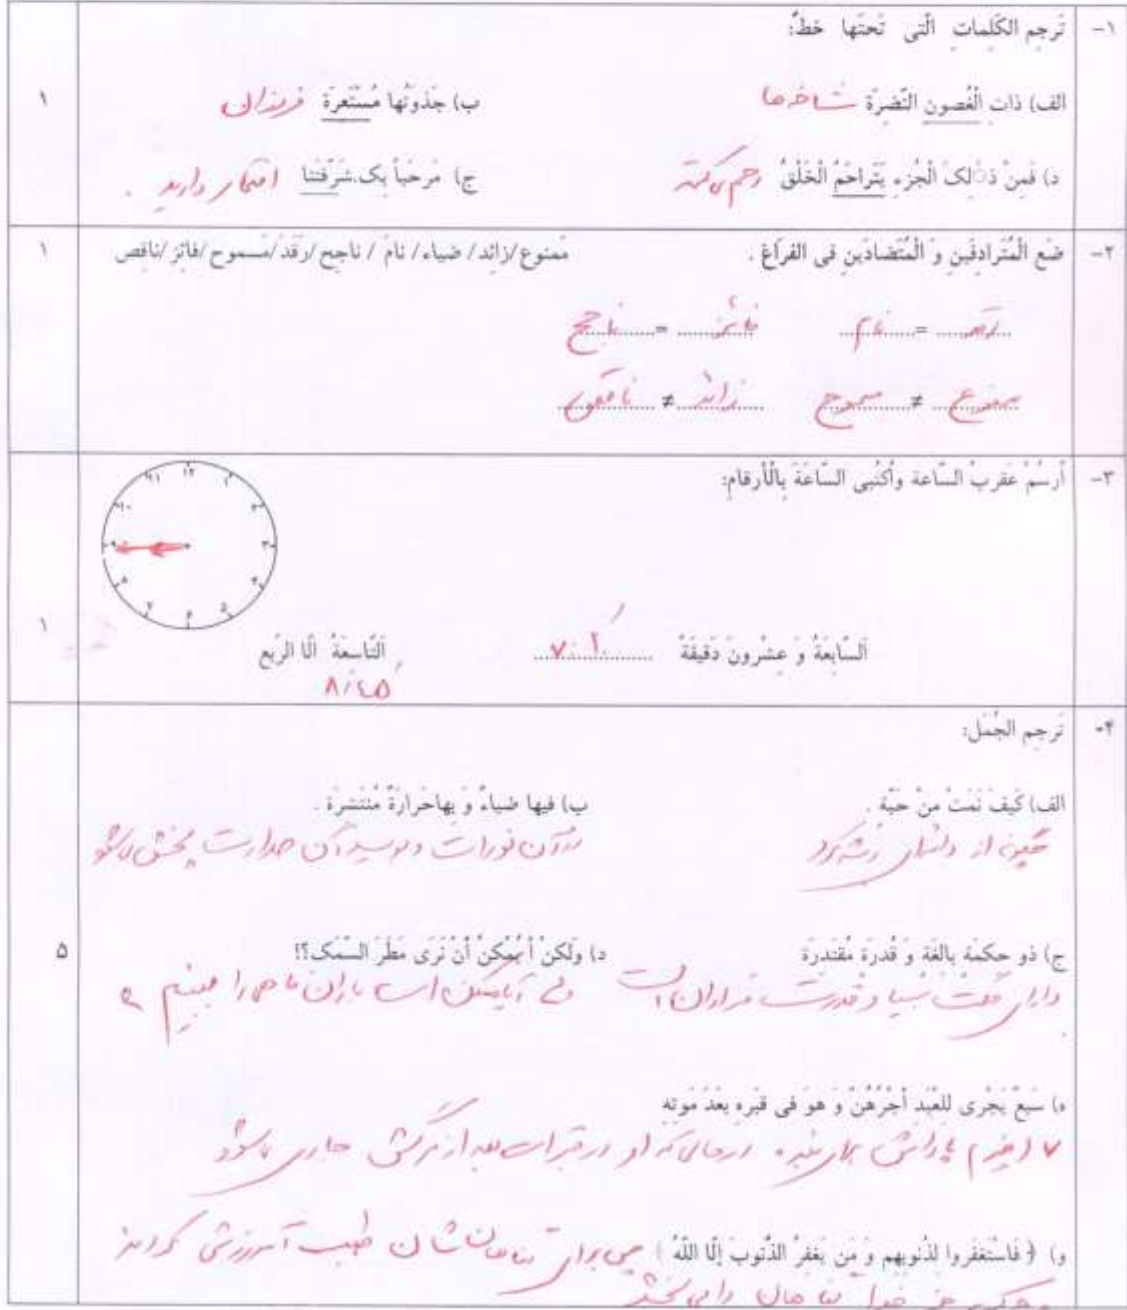 ۱- تَرجِم الکَلِماتِ الَّتی تَحتَها خطٌ:
الف) ذات الْغُصون النَّضِرَة شاخه‌ها ب) جَذوَتُها مُستَعِرَة فروزان ۱
د) فَمِنْ ذٰلِکَ الْجُزءِ یَتَراحَمُ الْخَلْقُ رحم می‌کند ج) مَرحَباً بِک.شَرَّفْتَنا افتخار دارید .
۲- ضَع الْمُتَرادِفَین وَ الْمُتَضادَین فی الفَراغ . مَمنوع/زائد/ ضیاء/ نامَ / ناجح/رَقَدَ/مَسموح/فائز/ناقِص ۱
رقد = نام فائز = ناجح
ممنوع ≠ مسموح زائد ≠ ناقص
۳- أرسُمْ عَقربُ السّاعة وأکتُبی السّاعَةَ بِالْأرقام:
۱۲ ۱ ۲ ۳ ۴ ۵ ۶ ۷ ۸ ۹ ۱۰ ۱۱
اَلسّابِعَةُ وَ عِشرونَ دَقیقَةً اَلتّاسِعَةُ الّا الرُبع ۱
۸:۴۵
۴- تَرجِم الجُمَل:
الف) کَیفَ نَمَتْ مِنْ حَبَّة . ب) فیها ضیاءٌ وَ بِهاحَرارَةٌ مُنتَشِرَة .
از دانه‌ای رشد کرد در آن نور است و بوسیله آن حرارت پخش می‌شود
ج) ذو حِکمَة بالِغَة وَ قُدرَة مُقتَدِرَة د) وَلکنْ أَ یُمْکنُ أنْ نَرَی مَطَرَ السَّمَک؟! ۵
دارای و قدرت فراوان است ولی آیا ممکن است باران ماهی را ببینیم ؟
ه) سَبعٌ یَجْری لِلعَبْد أجْرُهُنَّ وَ هوَ فی قَبْرِه بَعْدَ مَوته
۷ برای بنده درحالی که او در قبر است بعد از مرگش جاری می‌شود
و) ﴿ فَاسْتَغفَروا لِذُنوبِهِم وَ مَن یَغفِرُ الذُّنوبَ إلّا اللّهُ ﴾ پس برای گناهانشان طلب آمرزش کردند
جز خدا گناهان را می‌بخشد